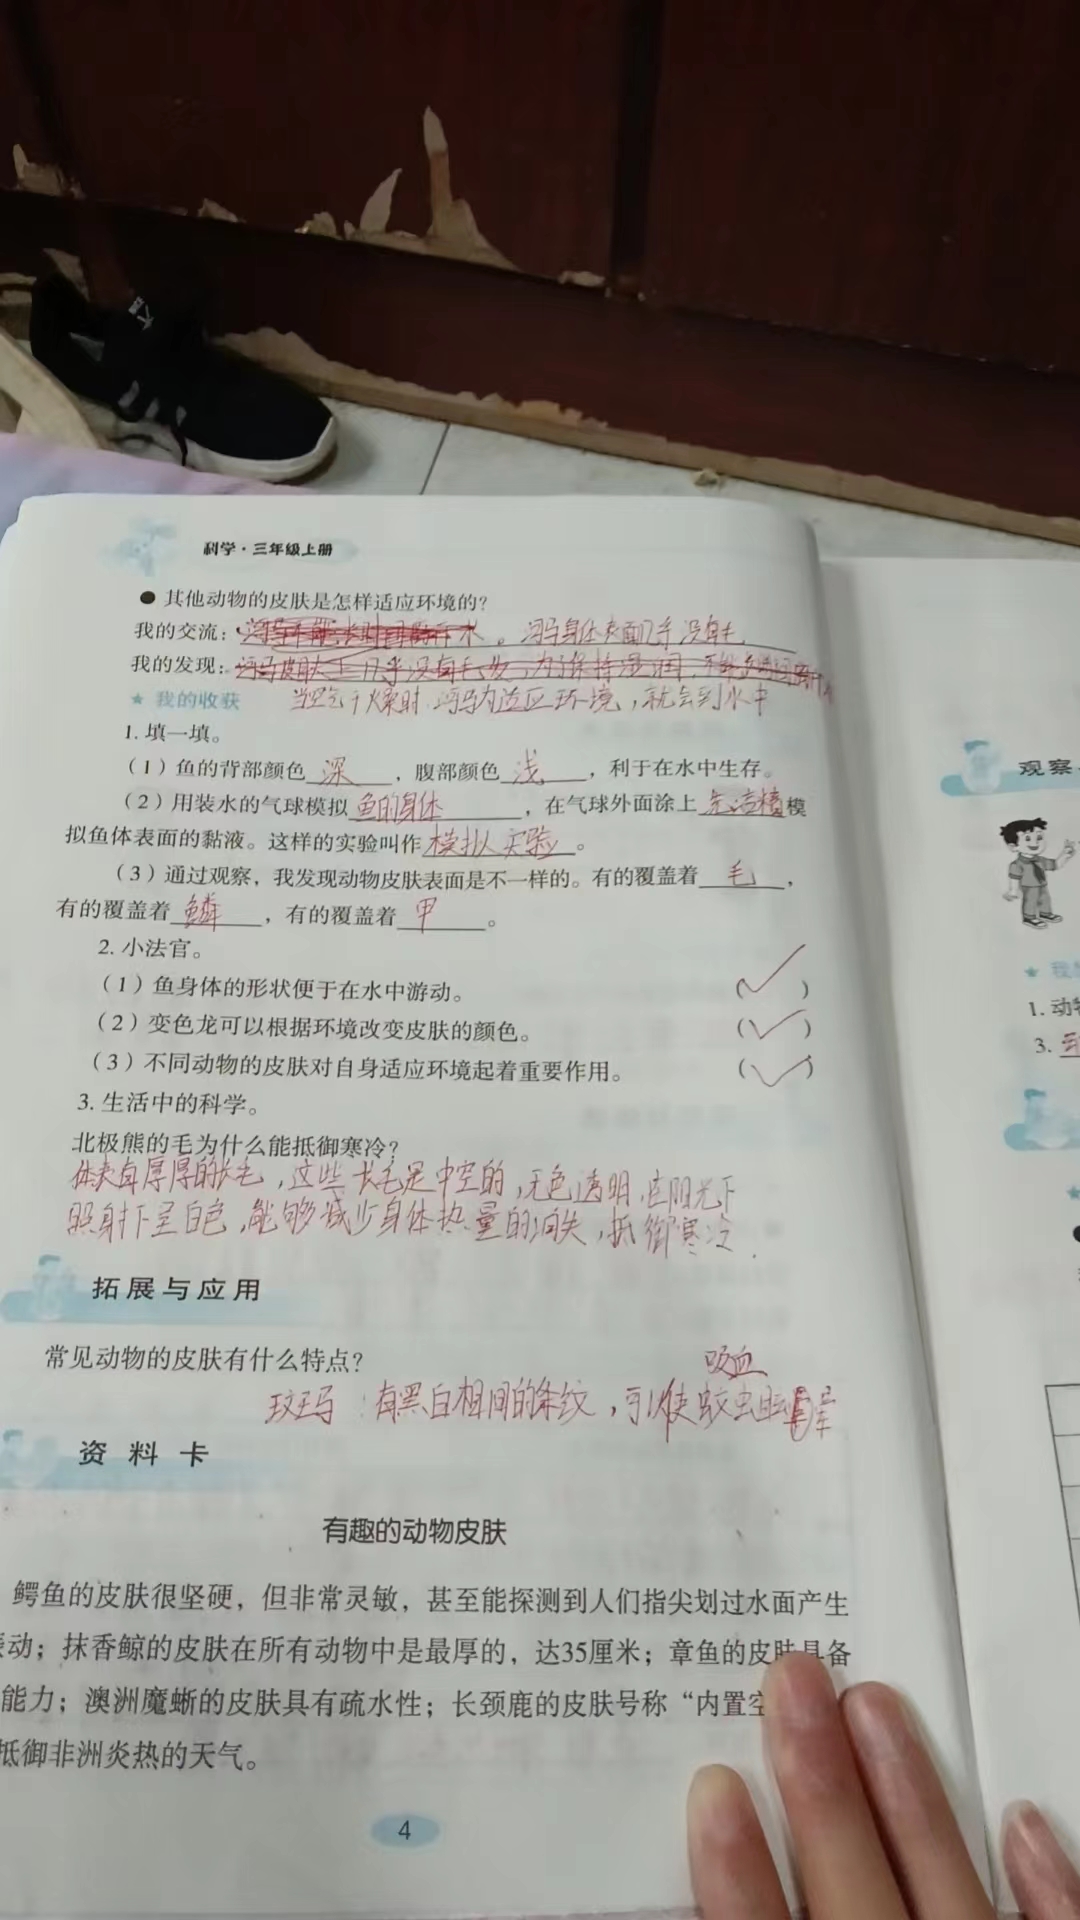 科学·三年级上册
● 其他动物的皮肤是怎样适应环境的?
我的交流: 河马身体表面几乎没有毛
我的发现: 河马皮肤上几乎没有毛发,为了保持湿润,不能
★ 我的收获 当空气干燥时,河马为适应环境,就会到水中
1. 填一填。
(1)鱼的背部颜色 深 ,腹部颜色 浅 ,利于在水中生存。
(2)用装水的气球模拟 鱼的身体 ,在气球外面涂上 洗洁精 模
拟鱼体表面的黏液。这样的实验叫作 模拟实验 。
(3)通过观察,我发现动物皮肤表面是不一样的。有的覆盖着 毛 ,
有的覆盖着 鳞 ,有的覆盖着 甲 。
2. 小法官。
(1)鱼身体的形状便于在水中游动。 (✓)
(2)变色龙可以根据环境改变皮肤的颜色。 (✓)
(3)不同动物的皮肤对自身适应环境起着重要作用。 (✓)
3. 生活中的科学。
北极熊的毛为什么能抵御寒冷?
体表有厚厚的长毛,这些长毛是中空的,无色透明,在阳光下
照射下呈白色,能够减少身体热量的消失,抵御寒冷.
拓展与应用
常见动物的皮肤有什么特点?
吸血
斑马:有黑白相间的条纹,可以使蚊虫眩晕
资料卡
有趣的动物皮肤
鳄鱼的皮肤很坚硬,但非常灵敏,甚至能探测到人们指尖划过水面产生
动;抹香鲸的皮肤在所有动物中是最厚的,达35厘米;章鱼的皮肤具备
能力;澳洲魔蜥的皮肤具有疏水性;长颈鹿的皮肤号称“内置空
抵御非洲炎热的天气。
4
观察
★ 我
1. 动物
3.